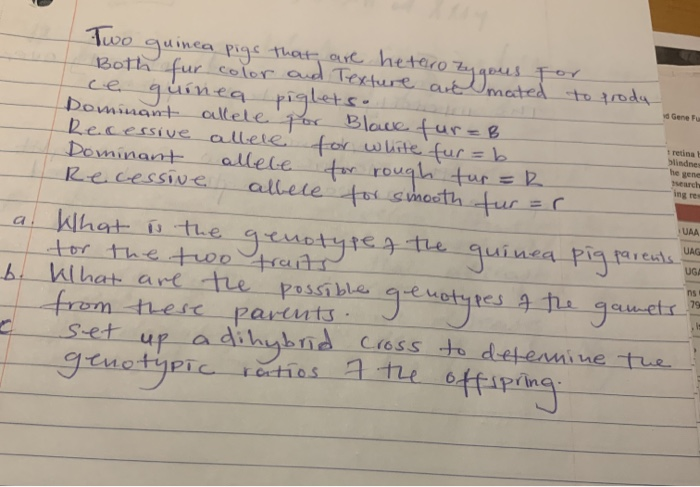 Two guinea pigs that are heterozygous for
Both fur color and Texture are mated to produ
ce guinea piglets.
Dominant allele for Black fur = B
Recessive allele for white fur = b
Dominant allele for rough fur = R
Recessive allele for smooth fur = r
a. What is the genotype of the guinea pig parents
for the two traits
b. What are the possible genotypes of the gamets
from these parents.
c set up a dihybrid cross to determine the
genotypic ratios of the offspring.
d Gene Fu
retina
blindne
he gene
search
ing res
UAA
UAG
UGA
ns
79